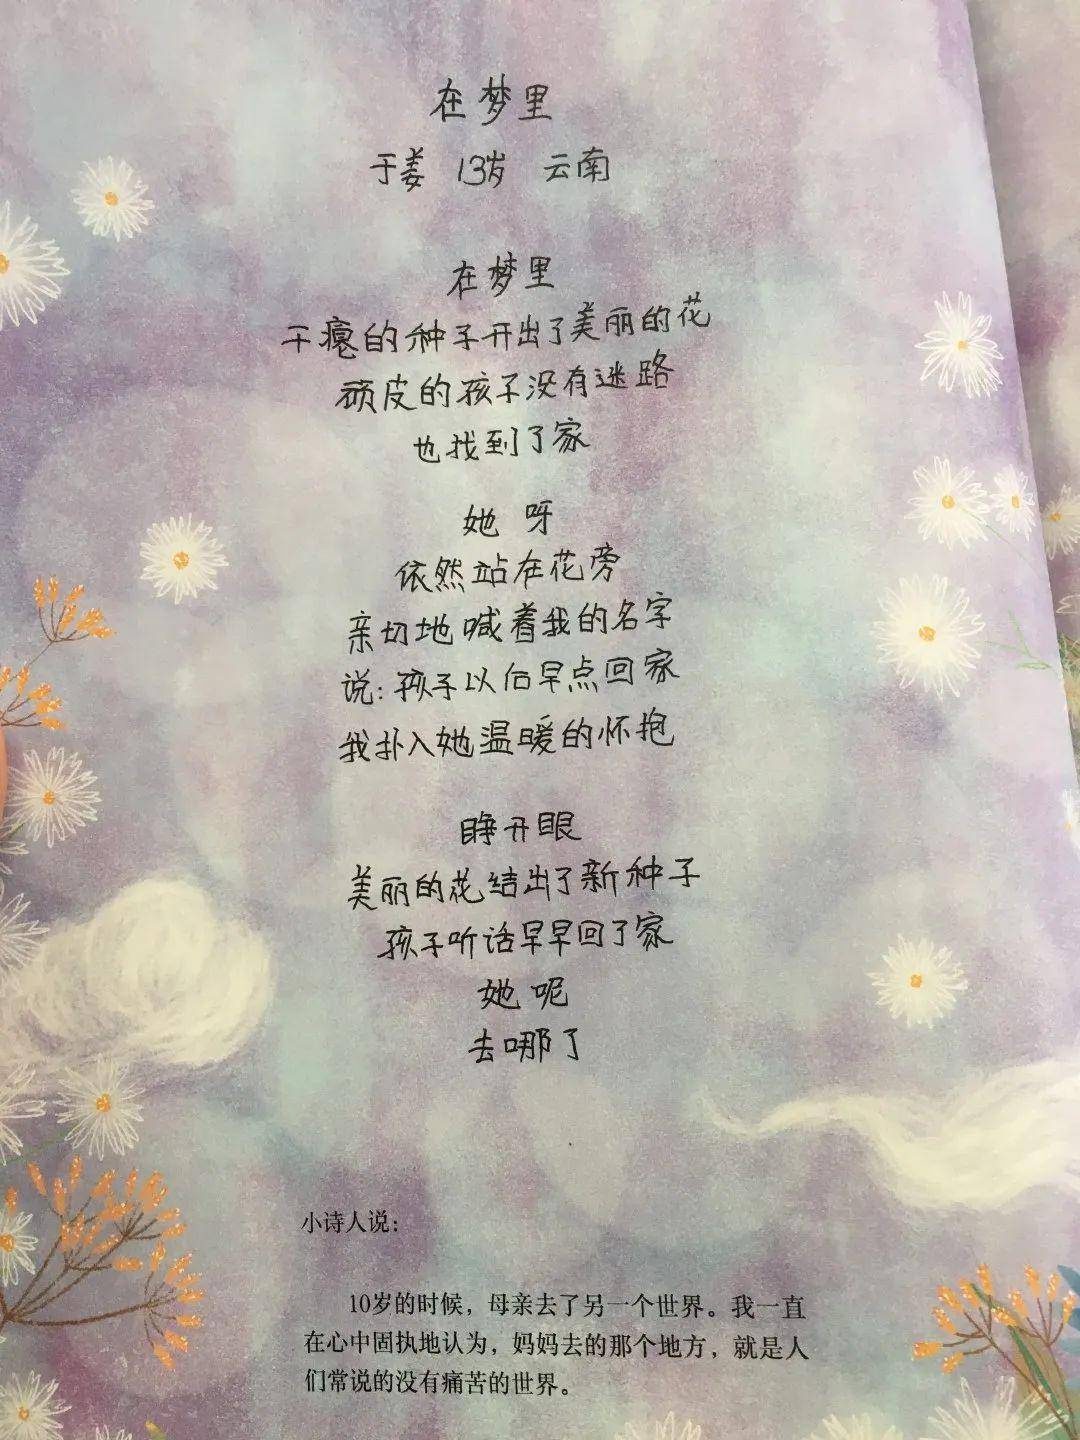 在梦里
于姜 13岁 云南
在梦里
干瘪的种子开出了美丽的花
顽皮的孩子没有迷路
也找到了家
她呀
依然站在花旁
亲切地喊着我的名字
说:孩子以后早点回家
我扑入她温暖的怀抱
睁开眼
美丽的花结出了新种子
孩子听话早早回了家
她呢
去哪了
小诗人说：
10岁的时候，母亲去了另一个世界。我一直
在心中固执地认为，妈妈去的那个地方，就是人
们常说的没有痛苦的世界。